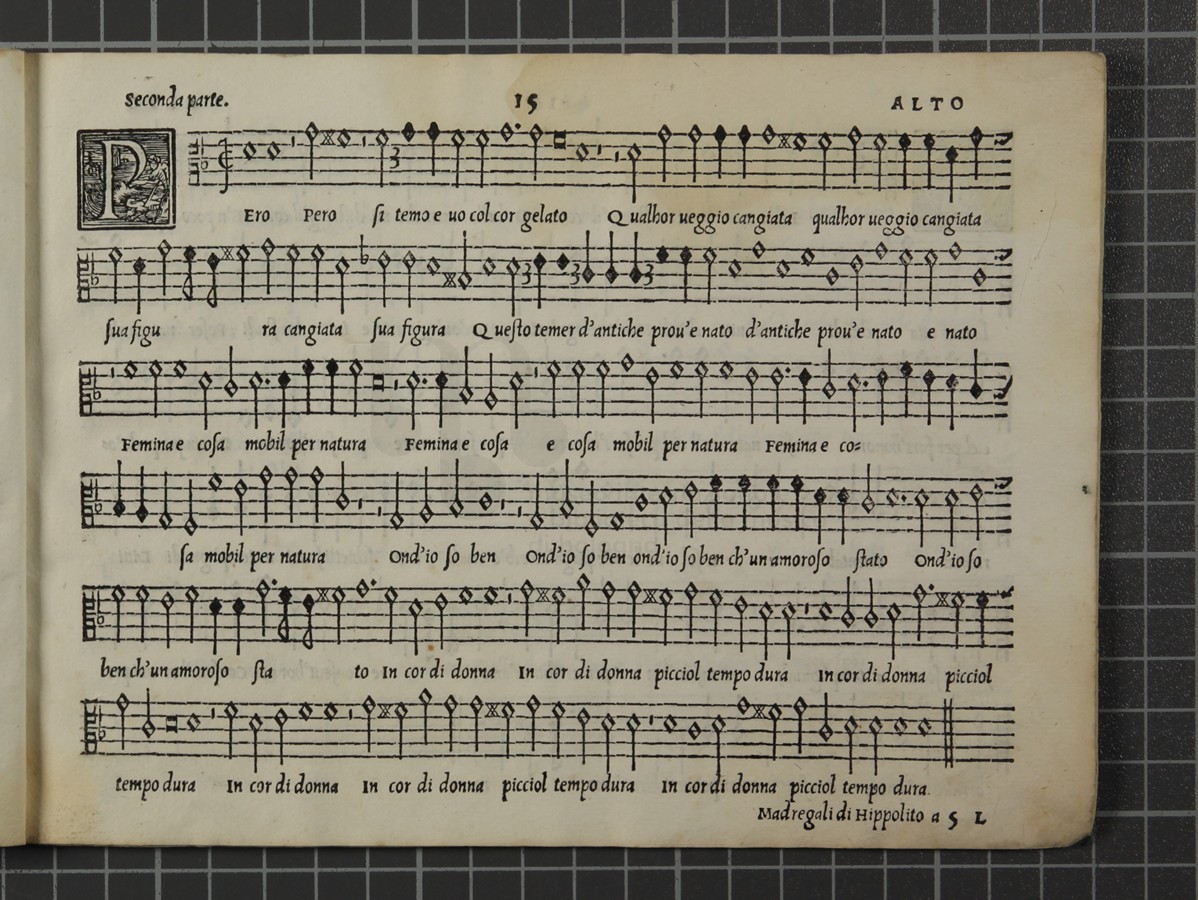 Seconda parte. 15 ALTO
P Ero Pero ſi temo e uo col cor gelato Qualhor ueggio cangiata qualhor ueggio cangiata
ſua figu ra cangiata ſua figura Queſto temer d'antiche prou'e nato d'antiche prou'e nato e nato
Femina e coſa mobil per natura Femina e coſa e coſa mobil per natura Femina e co=
ſa mobil per natura Ond'io ſo ben Ond'io ſo ben ond'io ſo ben ch'un amoroſo ſtato Ond'io ſo
ben ch'un amoroſo ſta to In cor di donna In cor di donna picciol tempo dura In cor di donna picciol
tempo dura In cor di donna In cor di donna picciol tempo dura In cor di donna picciol tempo dura.
Madregali di Hippolito a 5 L